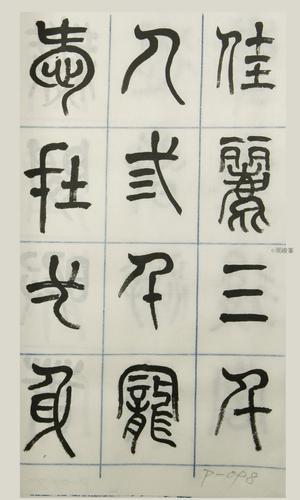 佳麗三千
人弎千寵
愛在弌身
P-098